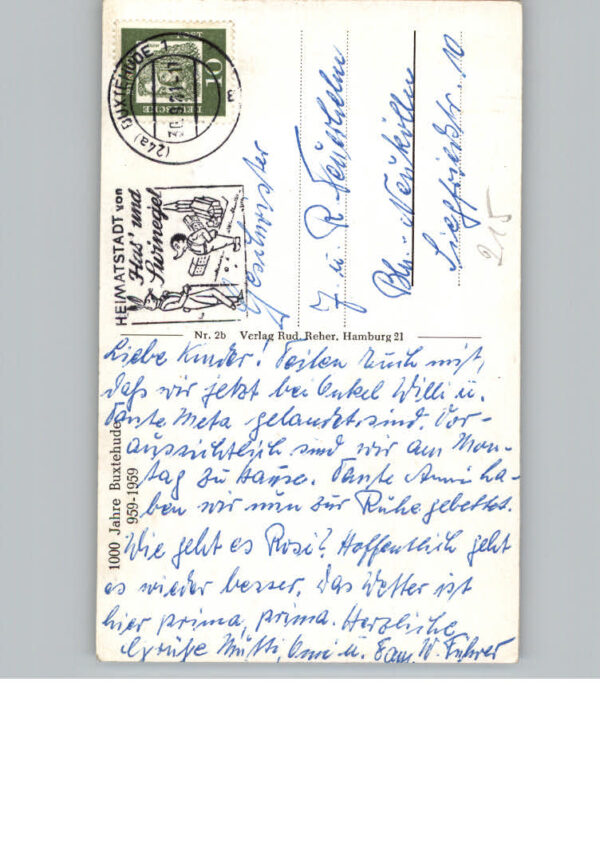 (24a) BUXTEHUDE 1
10
DEUTSCHE
POST
HEIMATSTADT von
Has' und
Swinegel
Geschwister
J. u. R.
Bln.-Neukölln
Siegfriedstr. 10
215
Nr. 2b Verlag Rud. Reher, Hamburg 21
1000 Jahre Buxtehude
959-1959
Liebe Kinder! Teilen Euch mit,
daß wir jetzt bei Onkel Willi u.
Tante Meta gelandet sind. Vor-
aussichtlich sind wir am Mon-
tag zu Hause. Tante Anni ha-
ben wir nun zur Ruhe gebettet.
Wie geht es Rosi? Hoffentlich geht
es wieder besser. Das Wetter ist
hier prima, prima. Herzliche
Grüße Mutti, Omi u. Fam. W. Führer